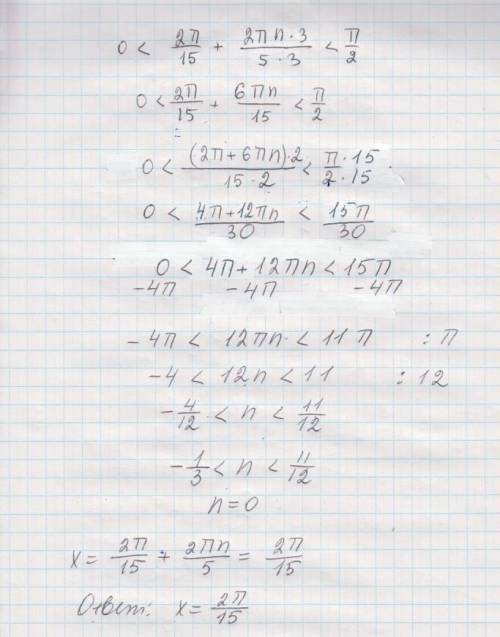 0 < 2π/15 + 2πn·3/5·3 < π/2
0 < 2π/15 + 6πn/15 < π/2
0 < (2π+6πn)·2/15·2 < π·15/2·15
0 < 4π+12πn/30 < 15π/30
0 < 4π+12πn < 15π
-4π -4π -4π
-4π < 12πn < 11π :π
-4 < 12n < 11 :12
-4/12 < n < 11/12
-1/3 < n < 11/12
n=0
x = 2π/15 + 2πn/5 = 2π/15
Ответ: x = 2π/15